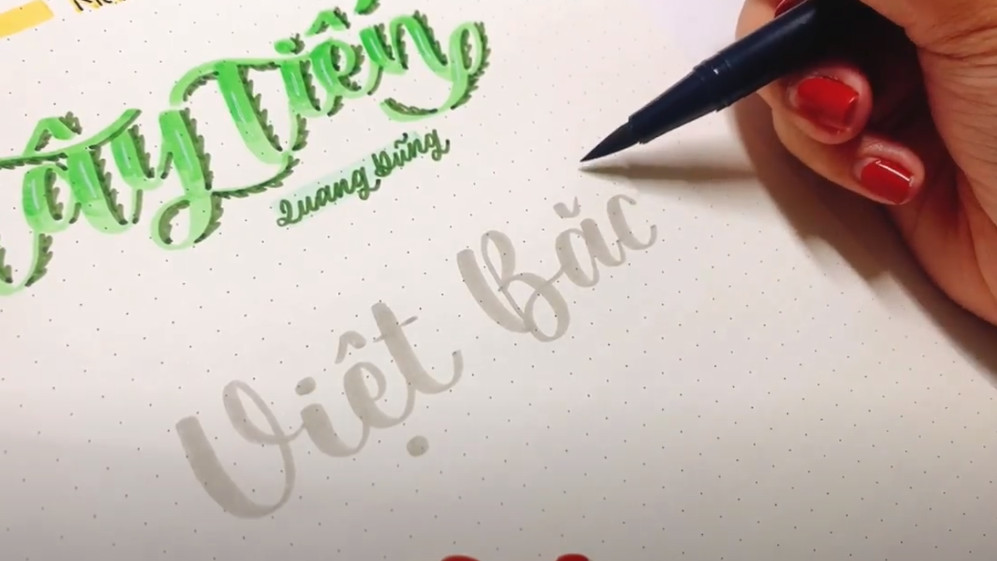 ây Tiến
Quang Dũng
Việt Bắc